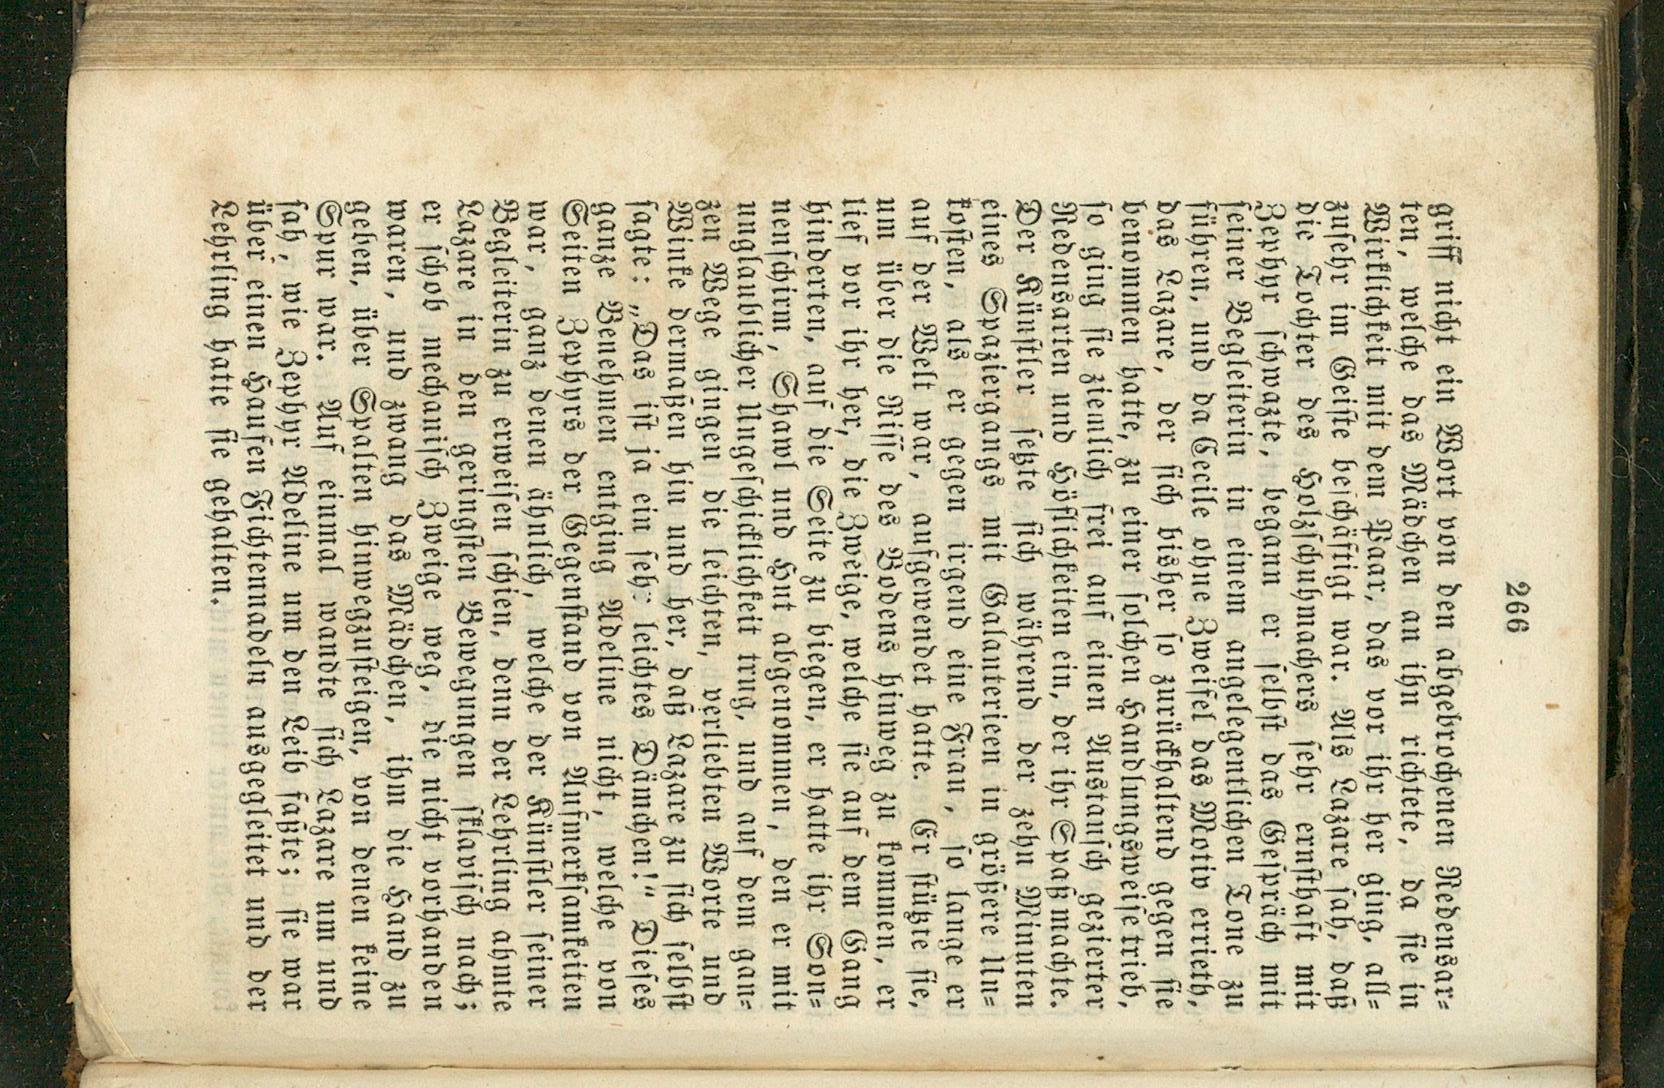 266
griff nicht ein Wort von den abgebrochenen Redensar-
ten, welche das Mädchen an ihn richtete, da sie in
Wirklichkeit mit dem Paar, das vor ihr her ging, all-
zusehr im Geiste beschäftigt war. Als Lazare sah, daß
die Tochter des Holzschuhmachers sehr ernsthaft mit
Zephyr schwazte, begann er selbst das Gespräch mit
seiner Begleiterin in einem angelegentlichen Tone zu
führen, und da Cecile ohne Zweifel das Motiv errieth,
das Lazare, der sich bisher so zurückhaltend gegen sie
benommen hatte, zu einer solchen Handlungsweise trieb,
so ging sie ziemlich frei auf einen Austausch gezierter
Redensarten und Höflichkeiten ein, der ihr Spaß machte.
Der Künstler setzte sich während der zehn Minuten
eines Spaziergangs mit Galanterieen in größere Un-
kosten, als er gegen irgend eine Frau, so lange er
auf der Welt war, aufgewendet hatte. Er stützte sie,
um über die Risse des Bodens hinweg zu kommen, er
lief vor ihr her, die Zweige, welche sie auf dem Gang
hinderten, auf die Seite zu biegen, er hatte ihr Son-
nenschirm, Shawl und Hut abgenommen, den er mit
unglaublicher Ungeschicklichkeit trug, und auf dem gan-
zen Wege gingen die leichten, verliebten Worte und
Winke dermaßen hin und her, daß Lazare zu sich selbst
sagte: „Das ist ja ein sehr leichtes Dämchen!“ Dieses
ganze Benehmen entging Adeline nicht, welche von
Seiten Zephyrs der Gegenstand von Aufmerksamkeiten
war, ganz denen ähnlich, welche der Künstler seiner
Begleiterin zu erweisen schien, denn der Lehrling ahmte
Lazare in den geringsten Bewegungen sklavisch nach;
er schob mechanisch Zweige weg, die nicht vorhanden
waren, und zwang das Mädchen, ihm die Hand zu
geben, über Spalten hinwegzusteigen, von denen keine
Spur war. Auf einmal wandte sich Lazare um und
sah, wie Zephyr Adeline um den Leib faßte; sie war
über einen Haufen Fichtennadeln ausgegleitet und der
Lehrling hatte sie gehalten.